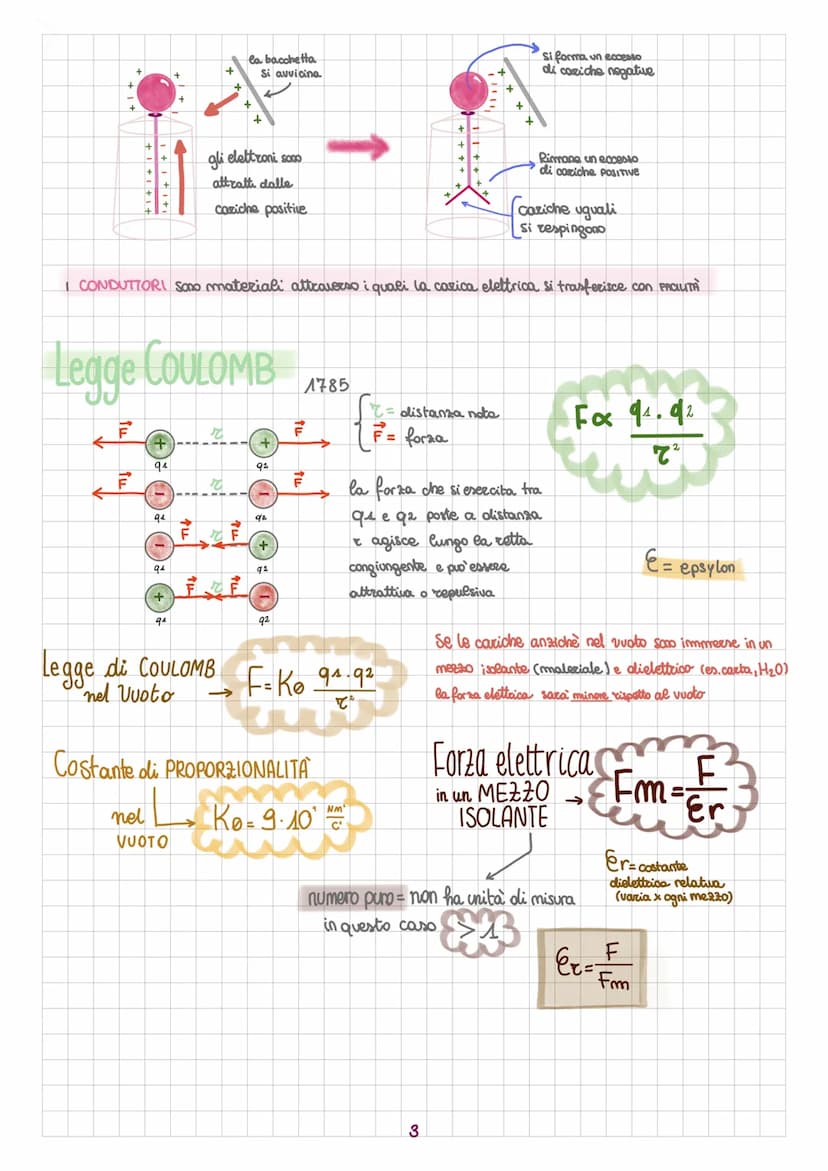 la bacchetta
si avvicina
gli elettroni sono
attratti dalle
cariche positive
si forma un eccesso
di cariche negative
Rimane un eccesso
di cariche POSITIVE
cariche uguali
si respingono
I CONDUTTORI sono materiali attraverso i quali la carica elettrica si trasferisce con FACILITÀ
Legge COULOMB
1785
r = distanza nota
F = forza
F r F
q1 q2
F r F
q1 q2
F r F
q1 q2
F r F
q1 q2
F ∝ q1 . q2 / r²
la forza che si esercita tra
q1 e q2 poste a distanza
r agisce lungo la retta
congiungente e può essere
attrattiva o repulsiva
ε = epsylon
Legge di COULOMB
nel Vuoto → F = K0 q1 . q2 / r²
Se le cariche anziché nel vuoto sono immerse in un
mezzo isolante (materiale) e dielettrico (es. carta, H2O)
la forza elettrica sarà minore rispetto al vuoto
Costante di PROPORZIONALITÀ
nel
VUOTO
K0 = 9 · 10⁹ Nm²/C²
Forza elettrica
in un MEZZO
ISOLANTE → Fm = F / εr
εr = costante
dielettrica relativa
(varia x ogni mezzo)
numero puro = non ha unità di misura
in questo caso > 1
εr = F / Fm
3